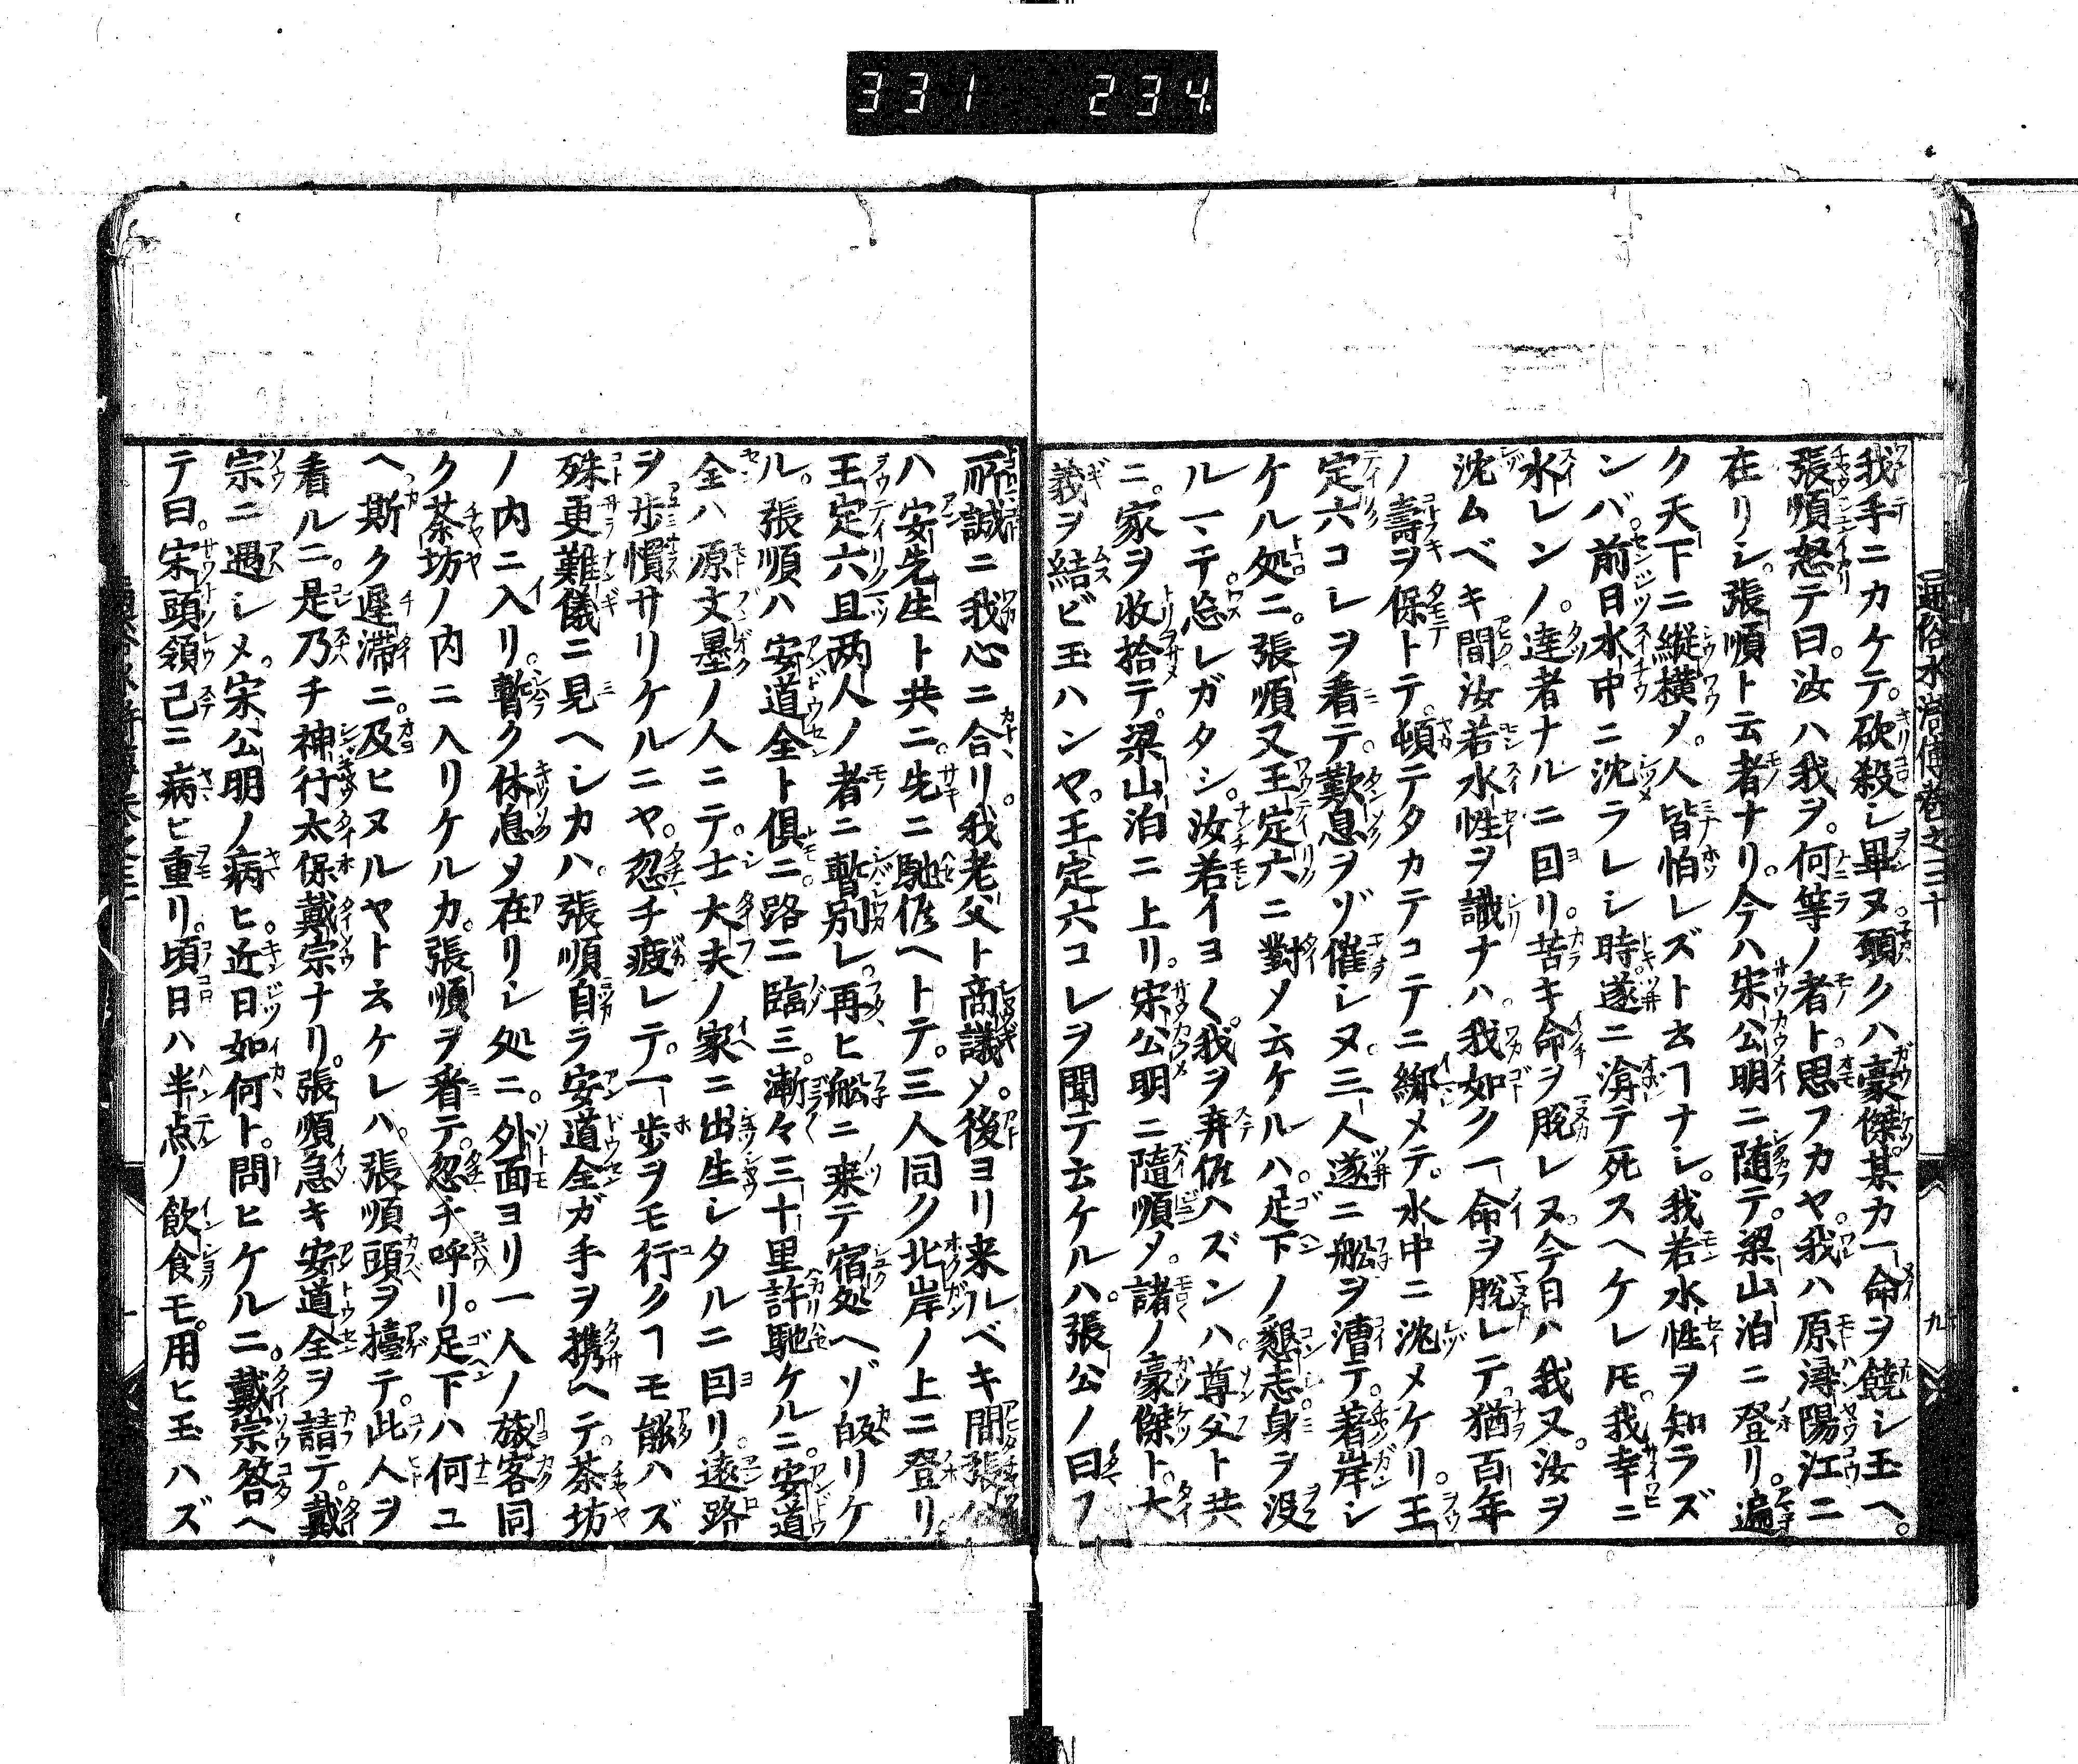 331 234
通俗水滸傳巻之三十
九
我手ニカケテ。砍殺シ畢ヌ。願クハ豪傑某カ一命ヲ饒シ玉ヘ。
張順怒テ曰。汝ハ我ヲ。何等ノ者ト思フカヤ。我ハ原潯陽江ニ
在リシ。張順ト云者ナリ。今ハ宋公明ニ随テ。梁山泊ニ登リ。遍
ク天下ニ縦横メ。人皆怕レズト云ヿナシ。我若水性ヲ知ラズ
ンバ。前日水中ニ沈ラレシ時。遂ニ渰テ死スヘケレ𪜈。我幸ニ
水レンノ。達者ナルニ回リ。苦キ命ヲ脱レヌ。今日ハ我又。汝ヲ
沈ムベキ間。汝若水性ヲ識ナハ。我如ク一命ヲ脱レテ。猶百年
ノ壽ヲ保トテ。頓テタカテコテニ綁メテ。水中ニ沈メケリ。王
定六コレヲ看テ。歎息ヲゾ催シヌ。三人遂ニ舩ヲ漕テ。著岸シ
ケル処ニ。張順又王定六ニ對メ云ケルハ。足下ノ懇志身ヲ没
ルヿ、テ忘レガタシ。汝若イヨ〱。我ヲ弃低ハズンハ。尊父ト共
ニ。家ヲ收拾テ。梁山泊ニ上リ。宋公明ニ隨順メ。諸ノ豪傑ト。大
義ヲ結ビ玉ハンヤ。王定六コレヲ聞テ云ケルハ。張公ノ曰フ
所誠ニ我心ニ合リ。我老父ト商議メ。後ヨリ来ルベキ間。張公
ハ安先生ト共ニ。先ニ馳低ヘトテ。三人同ク北岸ノ上ニ登リ
王定六且両人ノ者ニ暫別レ。再ヒ舩ニ来テ宿処ヘゾ皈リケ
ル。張順ハ安道全ト俱ニ。路ニ臨ミ。漸々三十里許馳ケルニ。安道
全ハ原文墨ノ人ニテ。士大夫ノ家ニ出生シタルニ回リ。遠路
ヲ歩慣サリケルニヤ。忽チ疲レテ。一歩ヲモ行クヿモ能ハズ
殊更難儀ニ見ヘシカハ。張順自ラ安道全ガ手ヲ携ヘテ。茶坊
ノ内ニ入リ。暫ク休息メ在リシ処ニ。外面ヨリ一人ノ旅客同
ク茶坊ノ内ニ入リケルカ。張順ヲ看テ。忽チ呼リ。足下ハ何ユ
ヘ斯ク遅滞ニ。及ヒヌルヤト云ケレハ。張順頭ヲ擡テ。此人ヲ
看ルニ。是乃チ神行太保戴宗ナリ。張順急キ安道全ヲ請テ。戴
宗ニ遇シメ。宋公明ノ病ヒ。近日如何ト。問ヒケルニ。戴宗答ヘ
テ曰。宋頭領己ニ病ヒ重リ。頃日ハ半点ノ飲食モ。用ヒ玉ハズ